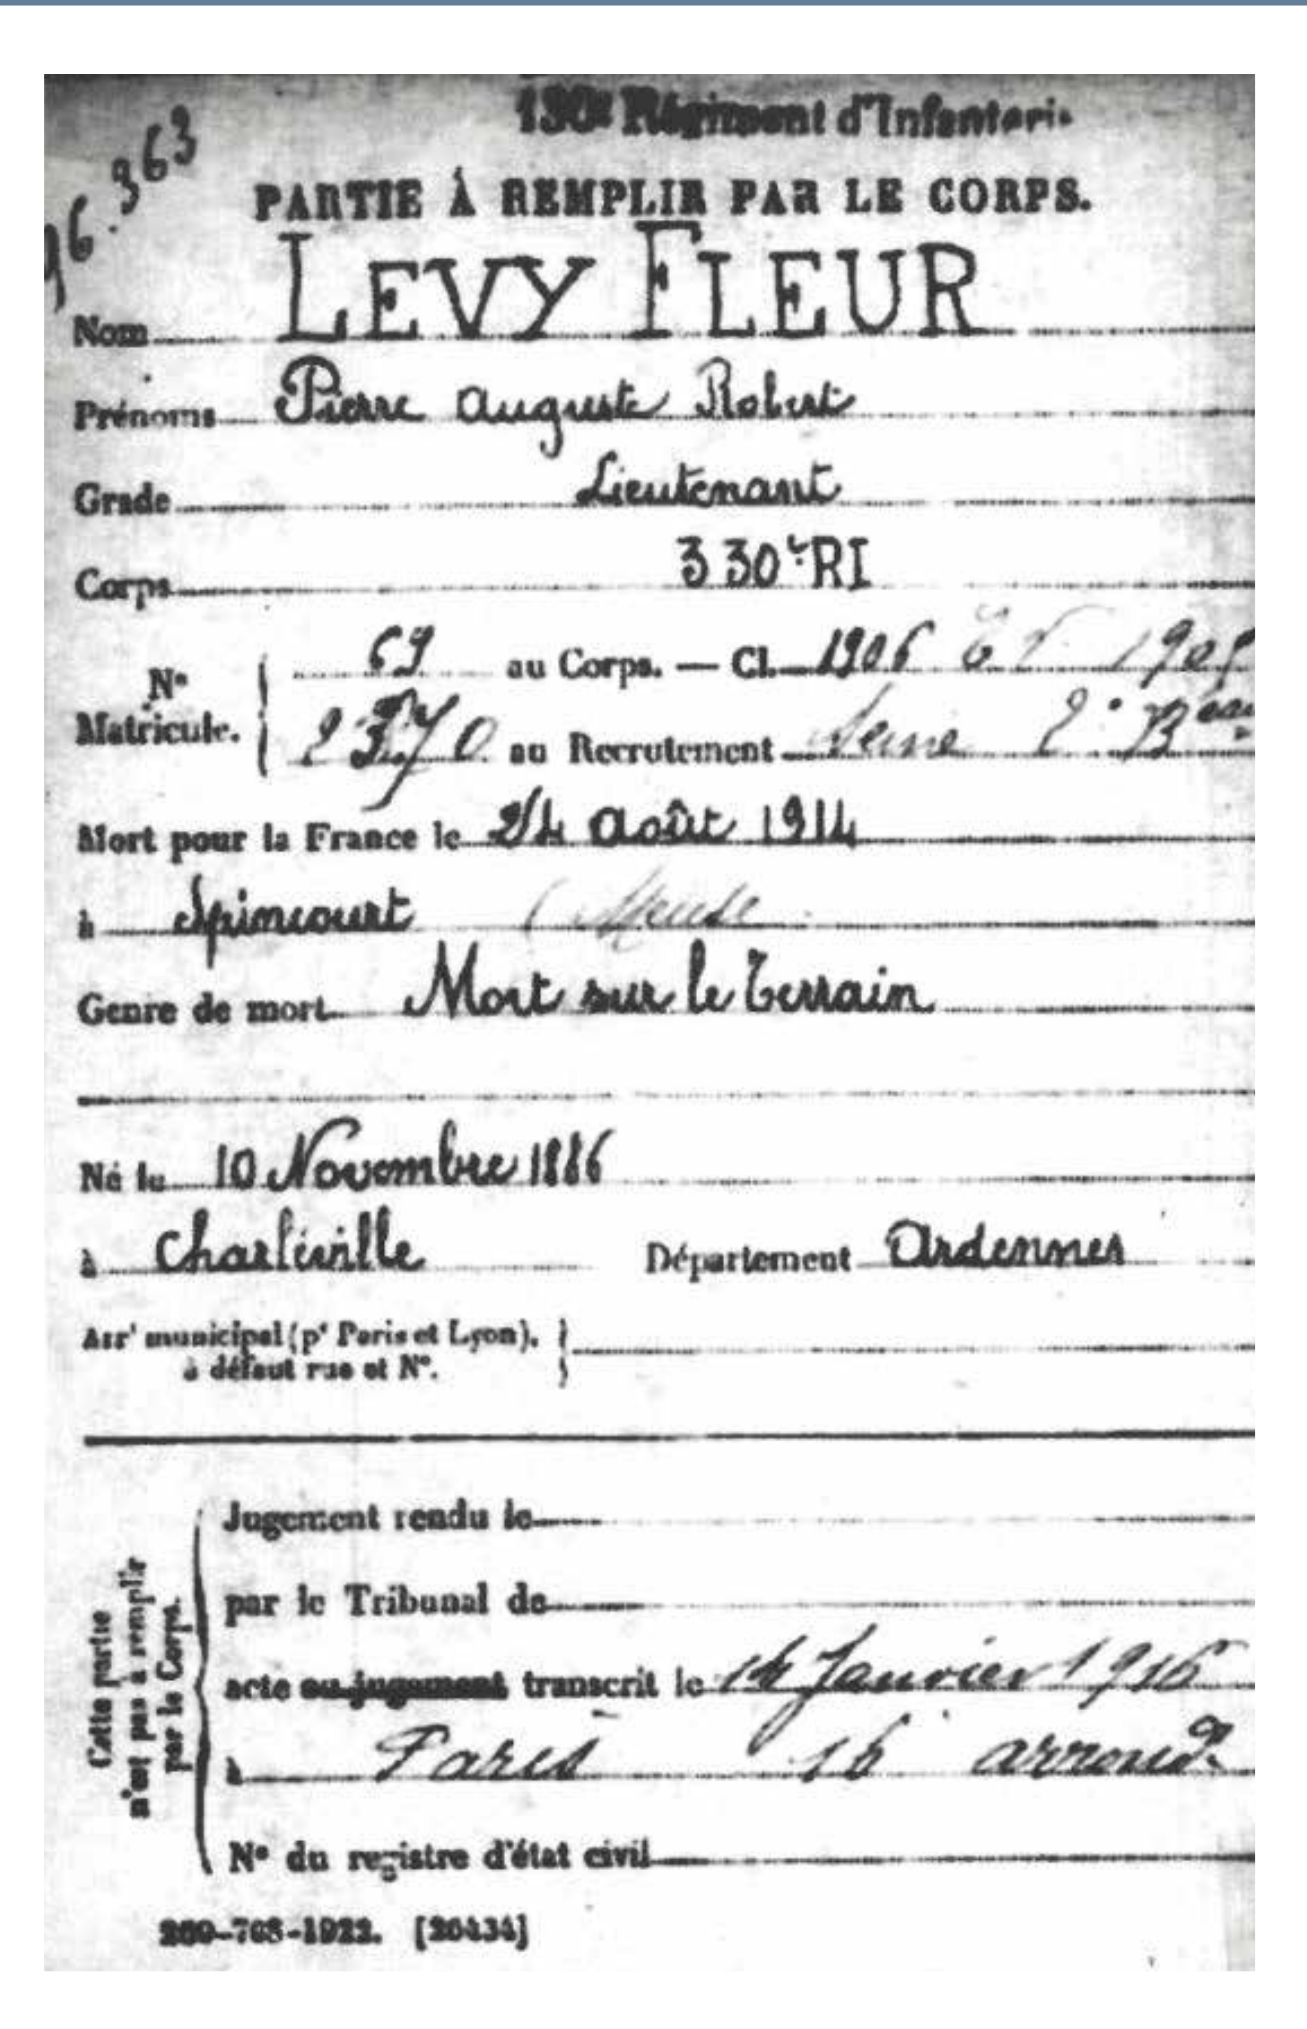 130e Régiment d'Infanterie
363
PARTIE À REMPLIR PAR LE CORPS.
Nom LEVY FLEUR
Prénoms Pierre Auguste Robert
Grade Lieutenant
Corps 330e RI
Nº Matricule.
69 au Corps. — Cl. 1906
2370 au Recrutement Seine 2e Beau
Mort pour la France le 24 Août 1914
à Spincourt (Meuse
Genre de mort Mort sur le terrain
Né le 10 Novembre 1886
à Charleville Département Ardennes
Arrt municipal (pr Paris et Lyon),
à défaut rue et Nº.
Cette partie
n'est pas à remplir
par le Corps.
Jugement rendu le
par le Tribunal de
acte ou jugement transcrit le 14 Janvier 1916
à Paris 16 arrondt
Nº du registre d'état civil
269-708-1922. [26434]